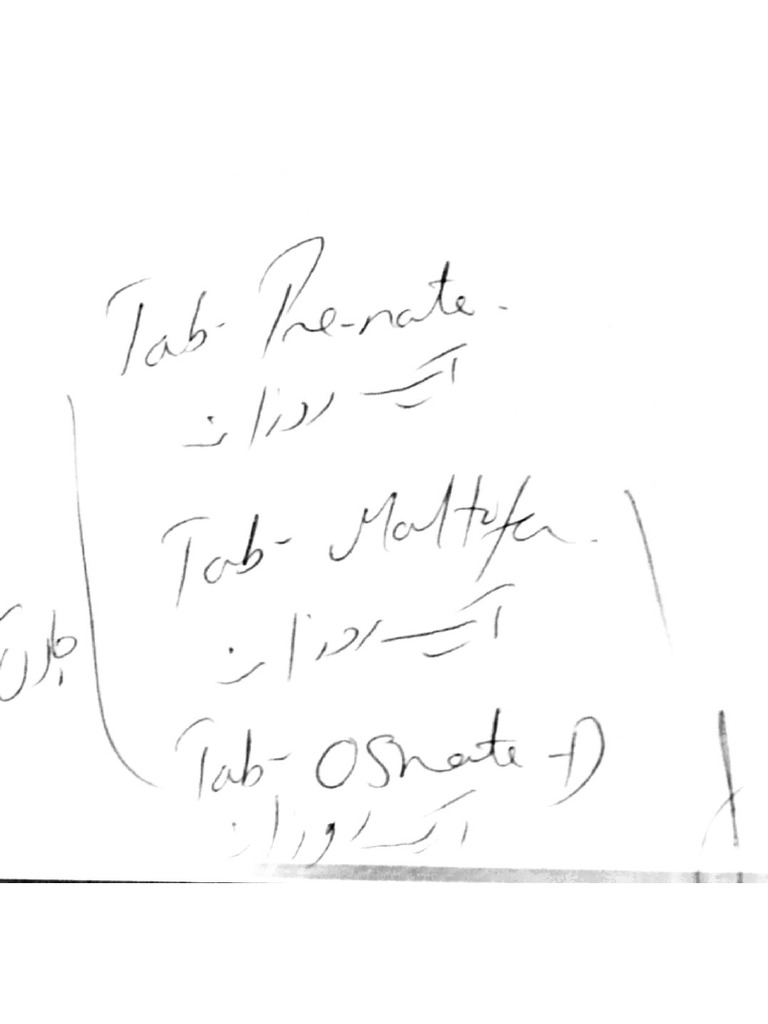 Tab- Pre-nate.
ایک روزانہ
Tab- Maltofer.
ایک روزانہ
Tab- OSnate-D
ایک روزانہ